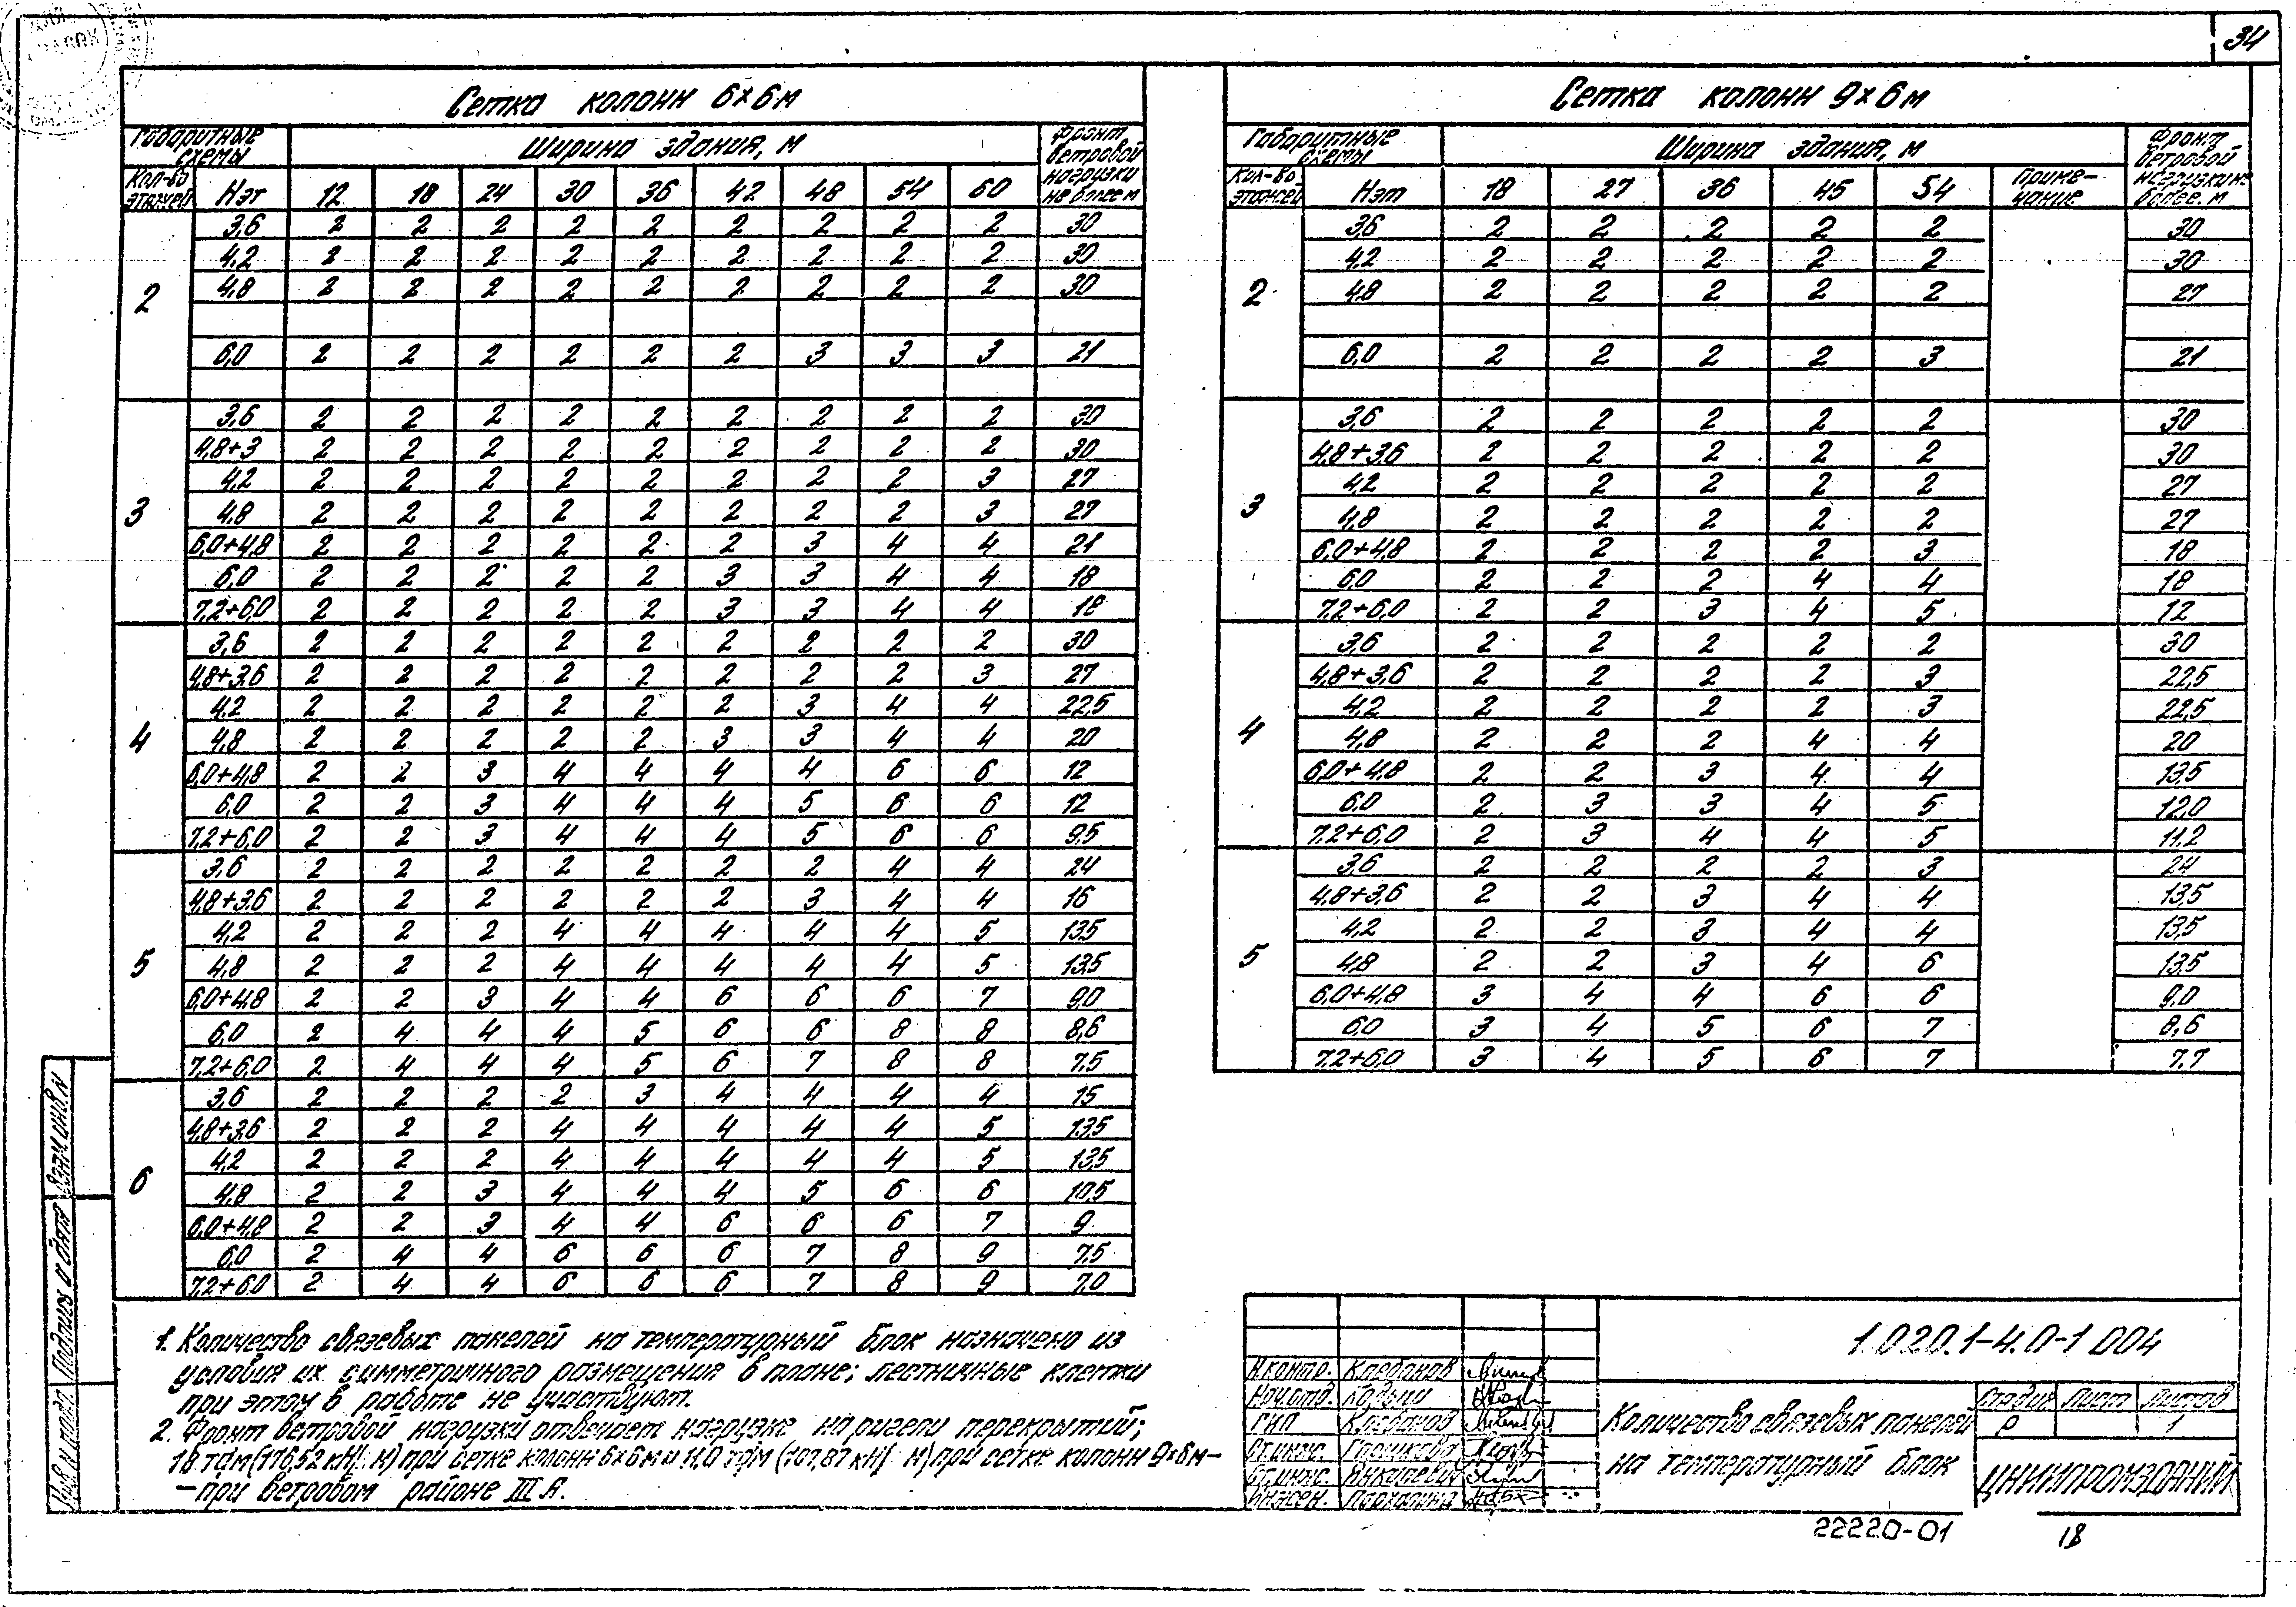 34
Сетка колонн 6×6м
Габаритные схемы Ширина здания, м Фронт ветровой нагрузки не более м
Кол-во этажей Нэт 12 18 24 30 36 42 48 54 60
2
3,6 2 2 2 2 2 2 2 2 2 30
4,2 2 2 2 2 2 2 2 2 2 30
4,8 2 2 2 2 2 2 2 2 2 30
6,0 2 2 2 2 2 2 3 3 3 21
3
3,6 2 2 2 2 2 2 2 2 2 30
4,8+3 2 2 2 2 2 2 2 2 2 30
4,2 2 2 2 2 2 2 2 2 3 27
4,8 2 2 2 2 2 2 2 2 3 27
6,0+4,8 2 2 2 2 2 2 3 4 4 21
6,0 2 2 2 2 2 3 3 4 4 18
7,2+6,0 2 2 2 2 2 3 3 4 4 18
4
3,6 2 2 2 2 2 2 2 2 2 30
4,8+3,6 2 2 2 2 2 2 2 2 3 27
4,2 2 2 2 2 2 2 3 4 4 22,5
4,8 2 2 2 2 2 3 3 4 4 20
6,0+4,8 2 2 3 4 4 4 4 6 6 12
6,0 2 2 3 4 4 4 5 6 6 12
7,2+6,0 2 2 3 4 4 4 5 6 6 9,5
5
3,6 2 2 2 2 2 2 2 4 4 24
4,8+3,6 2 2 2 2 2 2 3 4 4 16
4,2 2 2 2 4 4 4 4 4 5 13,5
4,8 2 2 2 4 4 4 4 4 5 13,5
6,0+4,8 2 2 3 4 4 6 6 6 7 9,0
6,0 2 4 4 4 5 6 6 8 8 8,6
7,2+6,0 2 4 4 4 5 6 7 8 8 7,5
6
3,6 2 2 2 2 3 4 4 4 4 15
4,8+3,6 2 2 2 4 4 4 4 4 5 13,5
4,2 2 2 2 4 4 4 4 4 5 13,5
4,8 2 2 3 4 4 4 5 6 6 10,5
6,0+4,8 2 2 3 4 4 6 6 6 7 9
6,0 2 4 4 6 6 6 7 8 9 7,5
7,2+6,0 2 4 4 6 6 6 7 8 9 7,0
Сетка колонн 9×6м
Габаритные схемы Ширина здания, м Фронт ветровой нагрузки не более, м
Кол-во этажей Нэт 18 27 36 45 54 Примечание
2
3,6 2 2 2 2 2 30
4,2 2 2 2 2 2 30
4,8 2 2 2 2 2 27
6,0 2 2 2 2 3 21
3
3,6 2 2 2 2 2 30
4,8+3,6 2 2 2 2 2 30
4,2 2 2 2 2 2 27
4,8 2 2 2 2 2 27
6,0+4,8 2 2 2 2 3 18
6,0 2 2 2 4 4 18
7,2+6,0 2 2 3 4 5 12
4
3,6 2 2 2 2 2 30
4,8+3,6 2 2 2 2 3 22,5
4,2 2 2 2 2 3 22,5
4,8 2 2 2 4 4 20
6,0+4,8 2 2 3 4 4 13,5
6,0 2 3 3 4 5 12,0
7,2+6,0 2 3 4 4 5 11,2
5
3,6 2 2 2 2 3 24
4,8+3,6 2 2 3 4 4 13,5
4,2 2 2 3 4 4 13,5
4,8 2 2 3 4 6 13,5
6,0+4,8 3 4 4 6 6 9,0
6,0 3 4 5 6 7 8,6
7,2+6,0 3 4 5 6 7 7,7
1. Количество связевых панелей на температурный блок назначено из
условия их симметричного размещения в плане; лестничные клетки
при этом в работе не участвуют.
2. Фронт ветровой нагрузки отвечает нагрузке на ригели перекрытий;
18 тс/м (176,52 кН/м) при сетке колонн 6×6м и 11,0 тс/м (107,87 кН/м) при сетке колонн 9×6м-
-при ветровом районе III А.
Инв. N подл. Подпись и дата Взам инв. N
1.020.1-4.0-1 004
Н.контр. Клебанов
Нач.отд. Кодыш
ГИП Клебанов
Ст.инж. Глошкова
Ст.инж. Янкилевич
Количество связевых панелей
на температурный блок
Стадия Лист Листов
Р 1
ЦНИИПРОМЗДАНИЙ
22220-01 18